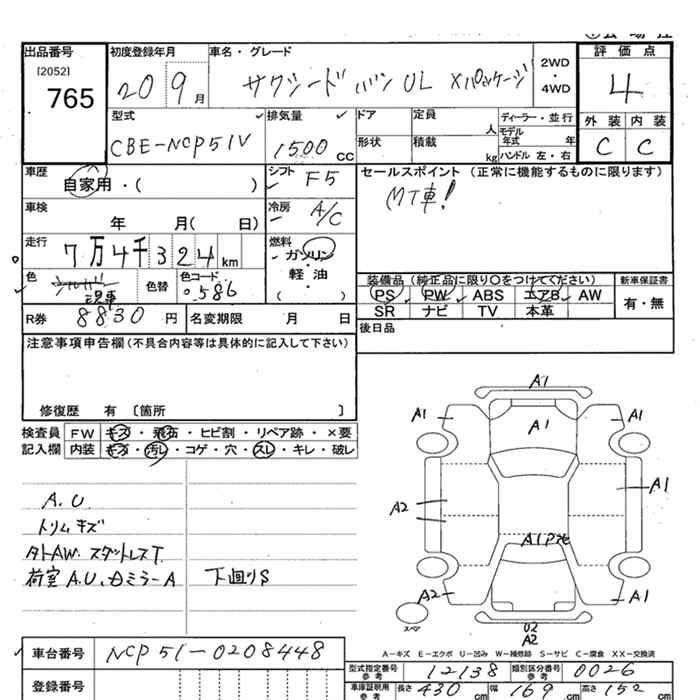 出品番号
[2052]
765
初度登録年月
20 9 月
車名・グレード
サクシードバン UL Xパッケージ
2WD
・
4WD
評価点
4
型式
CBE-NCP51V
排気量
1500 CC
ドア
定員
人
ディーラー・並行
モデル
年式 年
形状
積載
kg
ハンドル 左・右
外装 内装
C C
車歴
自家用・( )
シフト F5
セールスポイント(正常に機能するものに限ります)
MT車!
車検
年 月( 日)
冷房 A/C
走行
7万4千324 km
燃料
ガソリン
軽油
( )
色
色替
色コード
586
装備品(純正品に限り○をつけてください)
新車保証書
PS PW ABS エアB AW
SR ナビ TV 本革
有・無
R券 8830 円
名変期限 月 日
後日品
注意事項申告欄(不具合内容等は具体的に記入して下さい)
修復歴 有 [箇所 ]
検査員 FW キズ・飛石・ヒビ割・リペア跡・×要
記入欄 内装 キズ・汚レ・コゲ・穴・スレ・キレ・破レ
A.U.
トリムキズ
タトAW. スタットレスT.
荷室 A.U、Dミラー A
下廻りS
A1
A1 A1 A1
A2 A1
A1
A2 A1
スペア
U2
A2
A−キズ E−エクボ U−凹み W−補修跡 S−サビ C−腐食 XX−交換済
車台番号 NCP51-0208448
型式指定番号
参考
12138
類別区分番号
参考
0026
登録番号
車庫証明用
参考
長さ 430 cm 幅 169 cm 高さ 152 cm